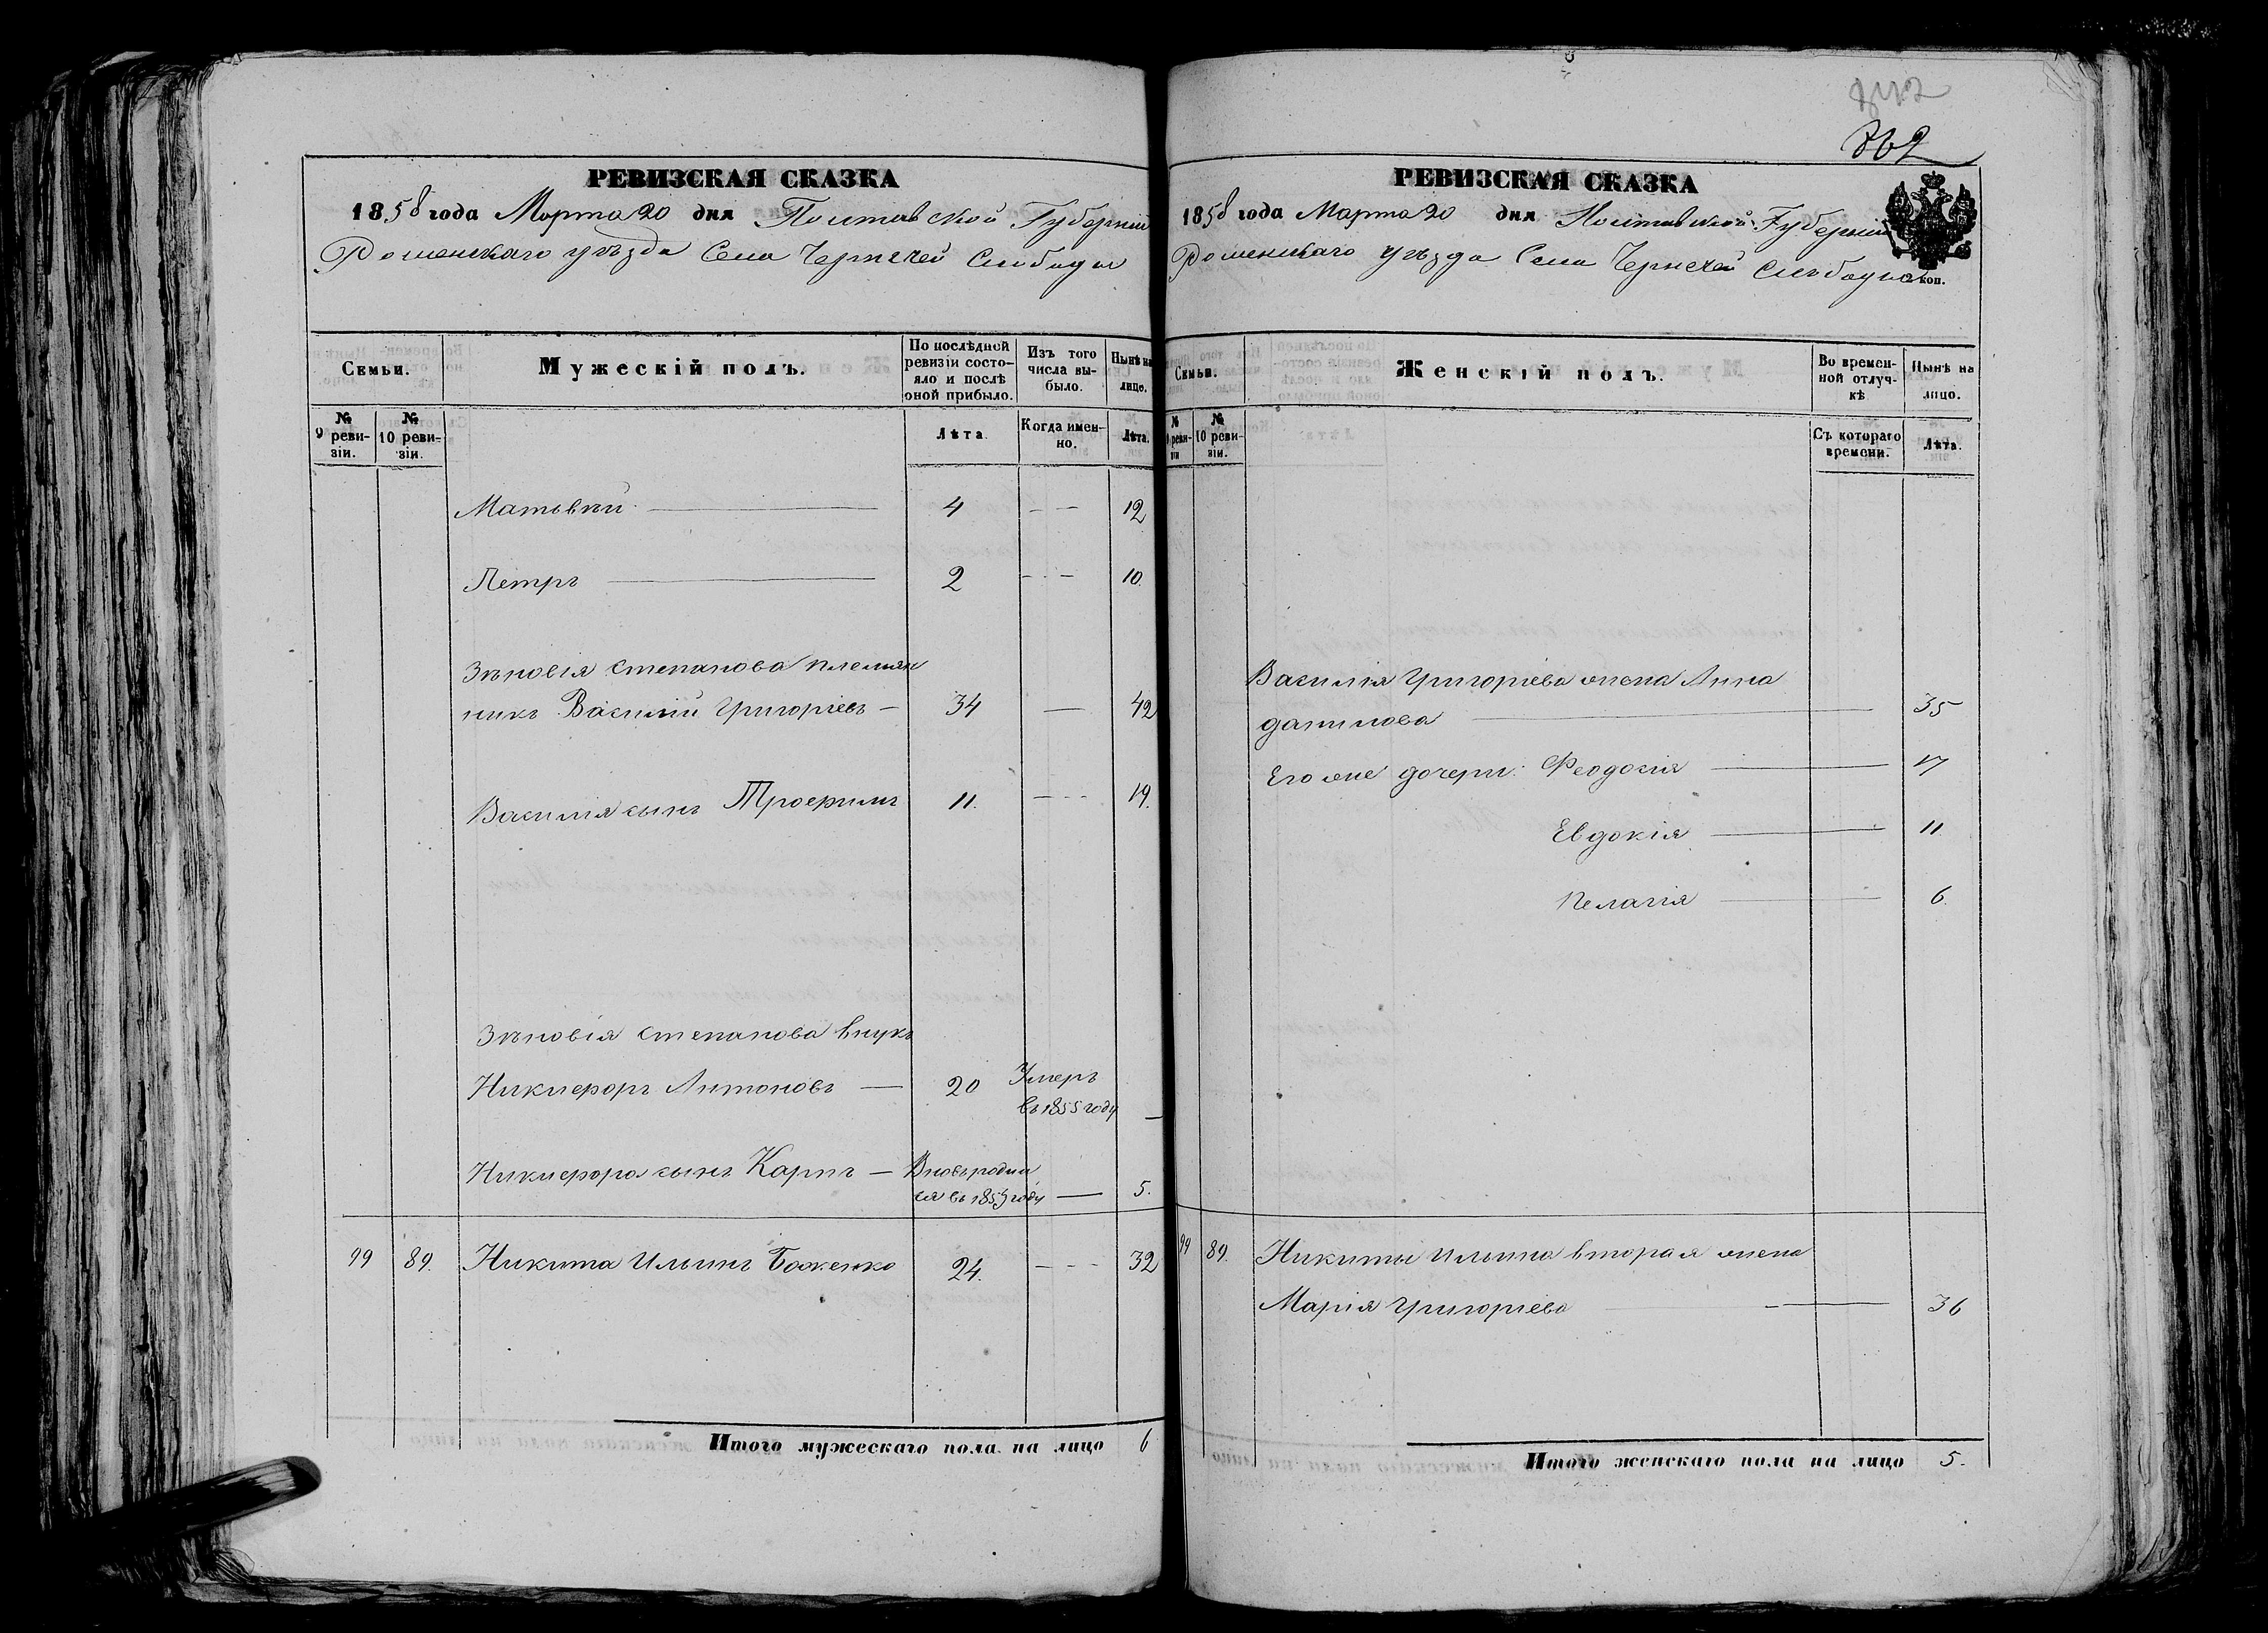 842
362
РЕВИЗСКАЯ СКАЗКА
1858 года Марта 20 дня Полтавской Губернии
Роменскаго уѣзда Села Чернечей Слободы
Семьи.
Мужескій полъ.
По послѣдной ревизіи состо-яло и послѣ оной прибыло.
Изъ того числа вы-было.
Нынѣ на лицо.
№ 9 реви-зіи.
№ 10 реви-зіи.
Лѣта.
Когда имен-но.
Лѣта.
Матвѣй 4 — — 12
Петръ 2 — — 10.
Зѣновія Степанова племян
никъ Василій Григоріевъ — 34 — 42
Василія сынъ Трофимъ 11. — — 19.
Зѣновія Степанова внукъ
Никифоръ Антоновъ — 20 Умеръ
въ 1855 году —
Никифора сынъ Карпъ — Вновь родил
ся въ 1853 году — 5.
99 89. Никита Ильинъ Боженко 24. — — 32
Итого мужескаго пола на лицо 6
РЕВИЗСКАЯ СКАЗКА
1858 года Марта 20 дня Полтавской Губерніи
Роменскаго уѣзда Села Чернечей Слободы
коп.
Семьи.
Женскій полъ.
Во времен-ной отлуч-кѣ
Нынѣ на лицо.
№ 9 реви-зіи
№ 10 реви-зіи.
Съ котораго времени.
Лѣта.
Василія Григоріева жена Анна
данилова — 35
Его же дочери: Феодосія — 17
Евдокія — 11
Пелагія — 6.
99 89. Никиты Ильина вторая жена
Марія Григоріева — 36
Итого женскаго пола на лицо 5.